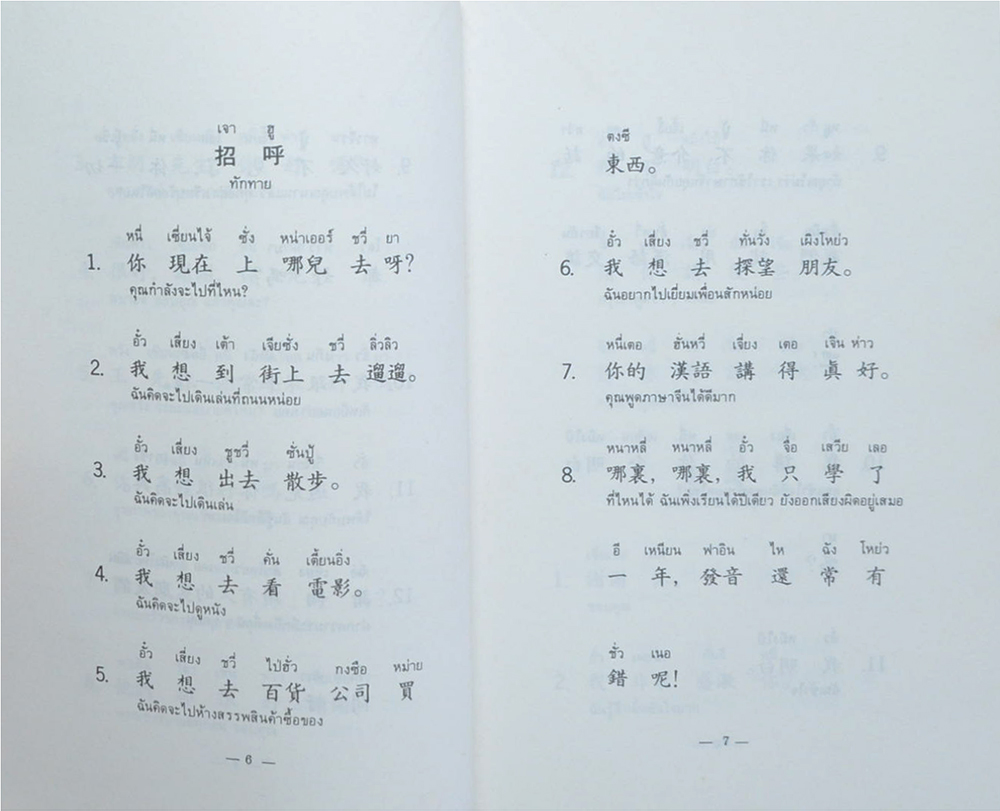 เจา ฮู
招 呼
ทักทาย
หนี่ เซี่ยนไจ้ ซั่ง หน่าเออร์ ชวี่ ยา
1. 你 現在 上 哪兒 去 呀?
คุณกำลังจะไปที่ไหน?
อั๋ว เสี่ยง เต้า เจียซั่ง ชวี่ ลิ่วลิว
2. 我 想 到 街上 去 遛遛。
ฉันคิดจะไปเดินเล่นที่ถนนหน่อย
อั๋ว เสี่ยง ชูชวี่ ซั่นปู้
3. 我 想 出去 散步。
ฉันคิดจะไปเดินเล่น
อั๋ว เสี่ยง ชวี่ คั่น เตี้ยนอิ่ง
4. 我 想 去 看 電影。
ฉันคิดจะไปดูหนัง
อั๋ว เสี่ยง ชวี่ ไป่ฮั่ว กงซือ หม่าย
5. 我 想 去 百貨 公司 買
ฉันคิดจะไปห้างสรรพสินค้าซื้อของ
— 6 —
ตงซี
東西。
อั๋ว เสี่ยง ชวี่ ทั่นวั่ง เผิงโหย่ว
6. 我 想 去 探望 朋友。
ฉันอยากไปเยี่ยมเพื่อนสักหน่อย
หนี่เตอ ฮั่นหวี่ เจี่ยง เตอ เจิน ห่าว
7. 你的 漢語 講 得 眞 好。
คุณพูดภาษาจีนได้ดีมาก
หนาหลี่ หนาหลี่ อั๋ว จื่อ เสวีย เลอ
8. 哪裏, 哪裏, 我 只 學 了
ที่ไหนได้ ฉันเพิ่งเรียนได้ปีเดียว ยังออกเสียงผิดอยู่เสมอ
อี เหนียน ฟาอิน ไห ฉัง โหย่ว
一 年, 發音 還 常 有
ชั่ว เนอ
錯 呢!
— 7 —